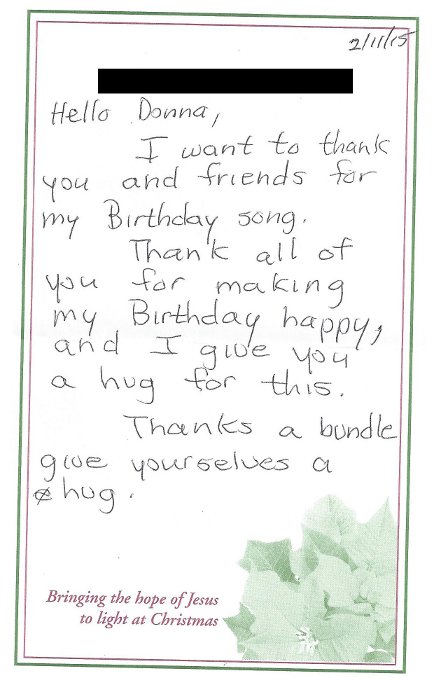 2/11/15
Hello Donna,
I want to thank
you and friends for
my Birthday song.
Thank all of
you for making
my Birthday happy,
and I give you
a hug for this.
Thanks a bundle
give yourselves a
hug.
Bringing the hope of Jesus
to light at Christmas